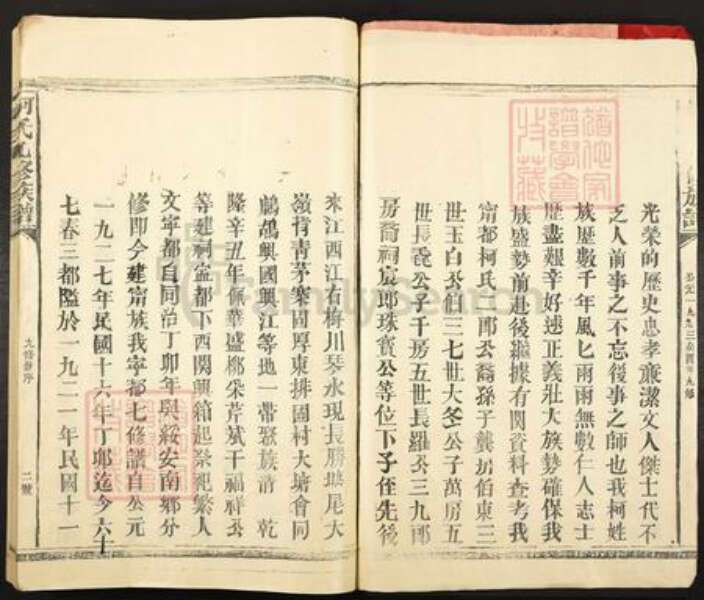 光榮的歷史忠孝廉潔文人傑士代不
乏人前事之不忘後事之師也我柯姓
族歷數千年風匕雨雨無數仁人志士
歷盡艱辛好遠正義壯大族勢確保我
族盛勢前赴後繼據有関資料查考我
甯都柯氏三郎公裔孫子龔坊伯東三
世玉白公伯三七世大冬公子萬房五
世長 公子千房五世長羅公三九郎
房裔祠宸郎珠寳公等位下子侄先後
來江西江右梅川琴水現長勝坳尾大
嶺背青茅寨固厚東排圍村大塘會同
鷓鴣興國興江等地一帶聚族清 乾
隆辛丑年佩華盛椰朶芹斌干福祥公
等建祠甯都下西関興箱起祭祀繁人
文寧都自同治丁卯年與綏安南鄉分
修即今建甯族我寧都七修譜自公元
一九二七年民國十六年丁卯迄今六十
七春三都隘於一九二一年民國十一
柯氏九修族譜
九修譜序
二號
公元一九九三 九修
FamilySearch